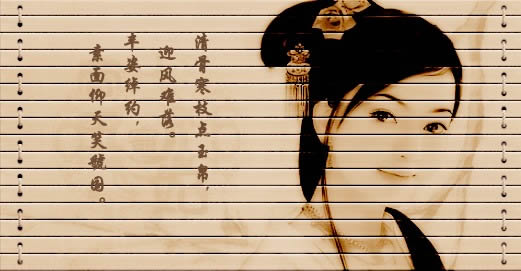 清骨寒枝点玉帛，
迎风难落。
丰姿绰约，
素面仰天笑虢国。